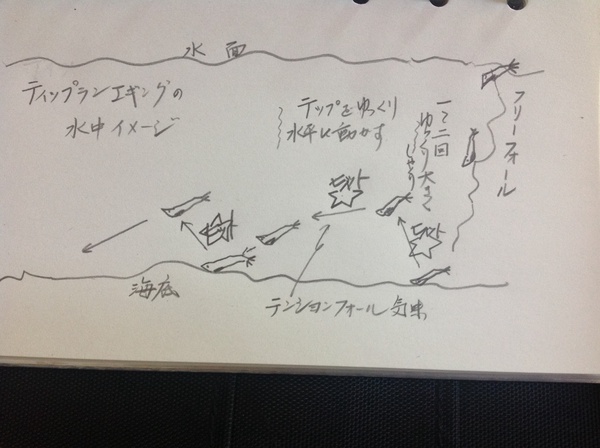 水面
ティップランエギングの
水中イメージ
テップをゆっくり
水平に動かす
一～二回
ゆっくり大きく
しゃくり
フリーフォール
海底
テンションフォール気味